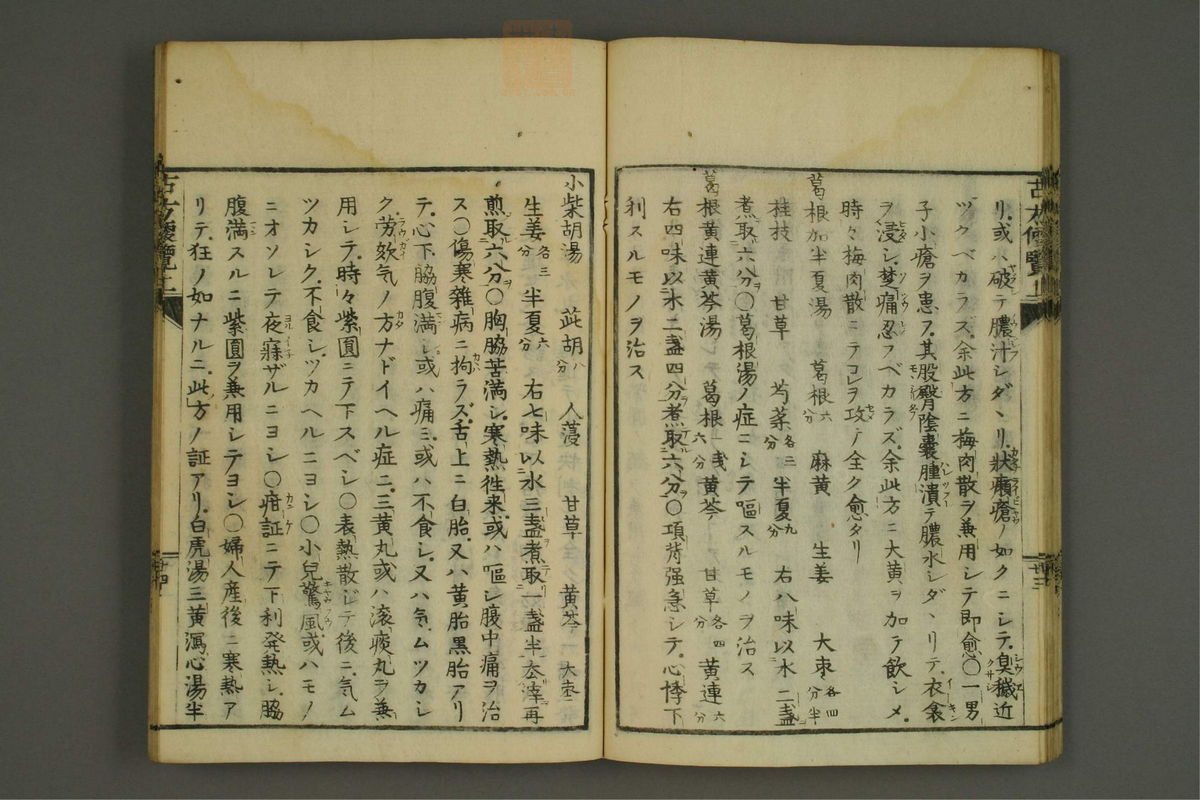 リ、或ハ破テ膿汁シダヽリ、状癩瘡ノ如クニシテ、臭穢近
ヅクベカラズ、余此方ニ梅肉散ヲ兼用シテ即愈、〇一男
子小瘡ヲ患フ、其股臀陰嚢腫潰テ膿水シダヽリテ、衣衾
ヲ浸シ、焚痛忍ブベカラズ、余此方ニ大黄ヲ加テ飲シメ、
時々梅肉散ニテコレヲ攻テ全ク愈タリ
葛根加半夏湯 葛根六分 麻黄 生姜 大棗各四分半
桂枝 甘草 芍薬各三分 半夏九分 右八味以水二盞
煮取六八分〇葛根湯ノ症ニシテ嘔スルモノヲ治ス
葛根黄連黄芩湯 葛根一戔六分 黄芩 甘草各四分 黄連六分
右四味以水二盞四八分煮取六八分〇項背強急シテ、心悸下
利スルモノヲ治ス
小柴胡湯 茈胡八分 人薓 甘草 黄芩 大棗
生姜各三分 半夏六分 右七味以水三盞煮取一盞半去滓再
煎取六八分〇胸脇苦満シ、寒熱徃来、或ハ嘔シ腹中痛ヲ治
ス〇傷寒雑病ニ拘ラズ、舌上ニ白胎、又ハ黄胎黒胎アリ
テ、心下、脇腹満シ、或ハ痛ミ、或ハ不食シ、又ハ気ムツカシ
ク、労欬気ノ方ナドイヘル症ニ、三黄丸或ハ滚痰丸ヲ兼
用シテ、時々紫圓ニテ下スベシ〇表熱散ジテ後ニ、気ム
ツカシク、不食シ、ツカヘルニヨシ〇小兒驚風或ハモノ
ニオソレテ夜寐ザルニヨシ〇疳証ニテ下利発熱シ、脇
腹満スルニ紫圓ヲ兼用シテヨシ〇婦人産後ニ寒熱ア
リテ、狂ノ如ナルニ、此方ノ証アリ、白虎湯三黄瀉心湯半